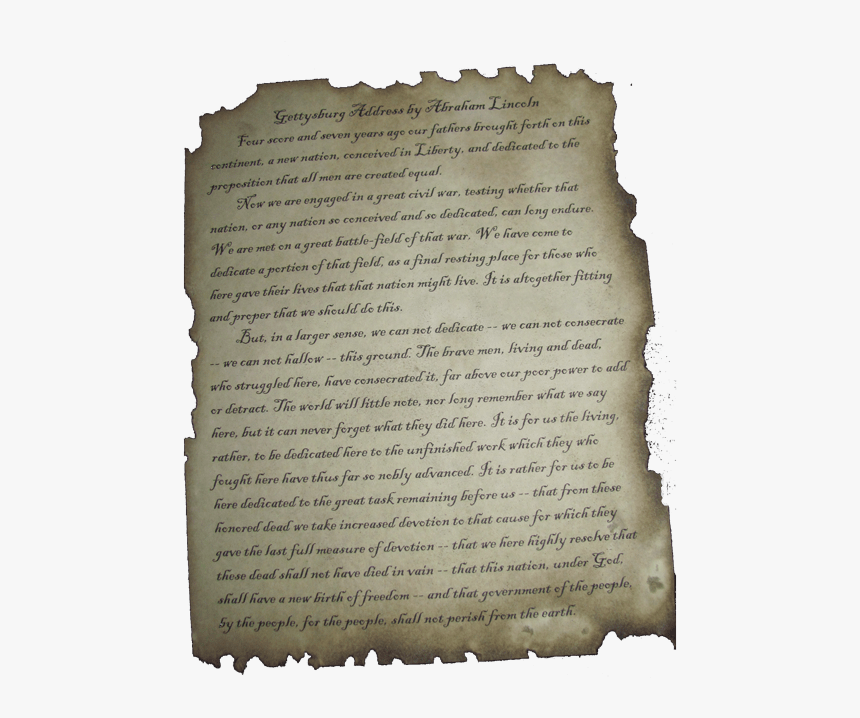 Gettysburg Address by Abraham Lincoln
Four score and seven years ago our fathers brought forth on this
continent, a new nation, conceived in Liberty, and dedicated to the
proposition that all men are created equal.
Now we are engaged in a great civil war, testing whether that
nation, or any nation so conceived and so dedicated, can long endure.
We are met on a great battle-field of that war. We have come to
dedicate a portion of that field, as a final resting place for those who
here gave their lives that that nation might live. It is altogether fitting
and proper that we should do this.
But, in a larger sense, we can not dedicate -- we can not consecrate
-- we can not hallow -- this ground. The brave men, living and dead,
who struggled here, have consecrated it, far above our poor power to add
or detract. The world will little note, nor long remember what we say
here, but it can never forget what they did here. It is for us the living,
rather, to be dedicated here to the unfinished work which they who
fought here have thus far so nobly advanced. It is rather for us to be
here dedicated to the great task remaining before us -- that from these
honored dead we take increased devotion to that cause for which they
gave the last full measure of devotion -- that we here highly resolve that
these dead shall not have died in vain -- that this nation, under God,
shall have a new birth of freedom -- and that government of the people,
by the people, for the people, shall not perish from the earth.